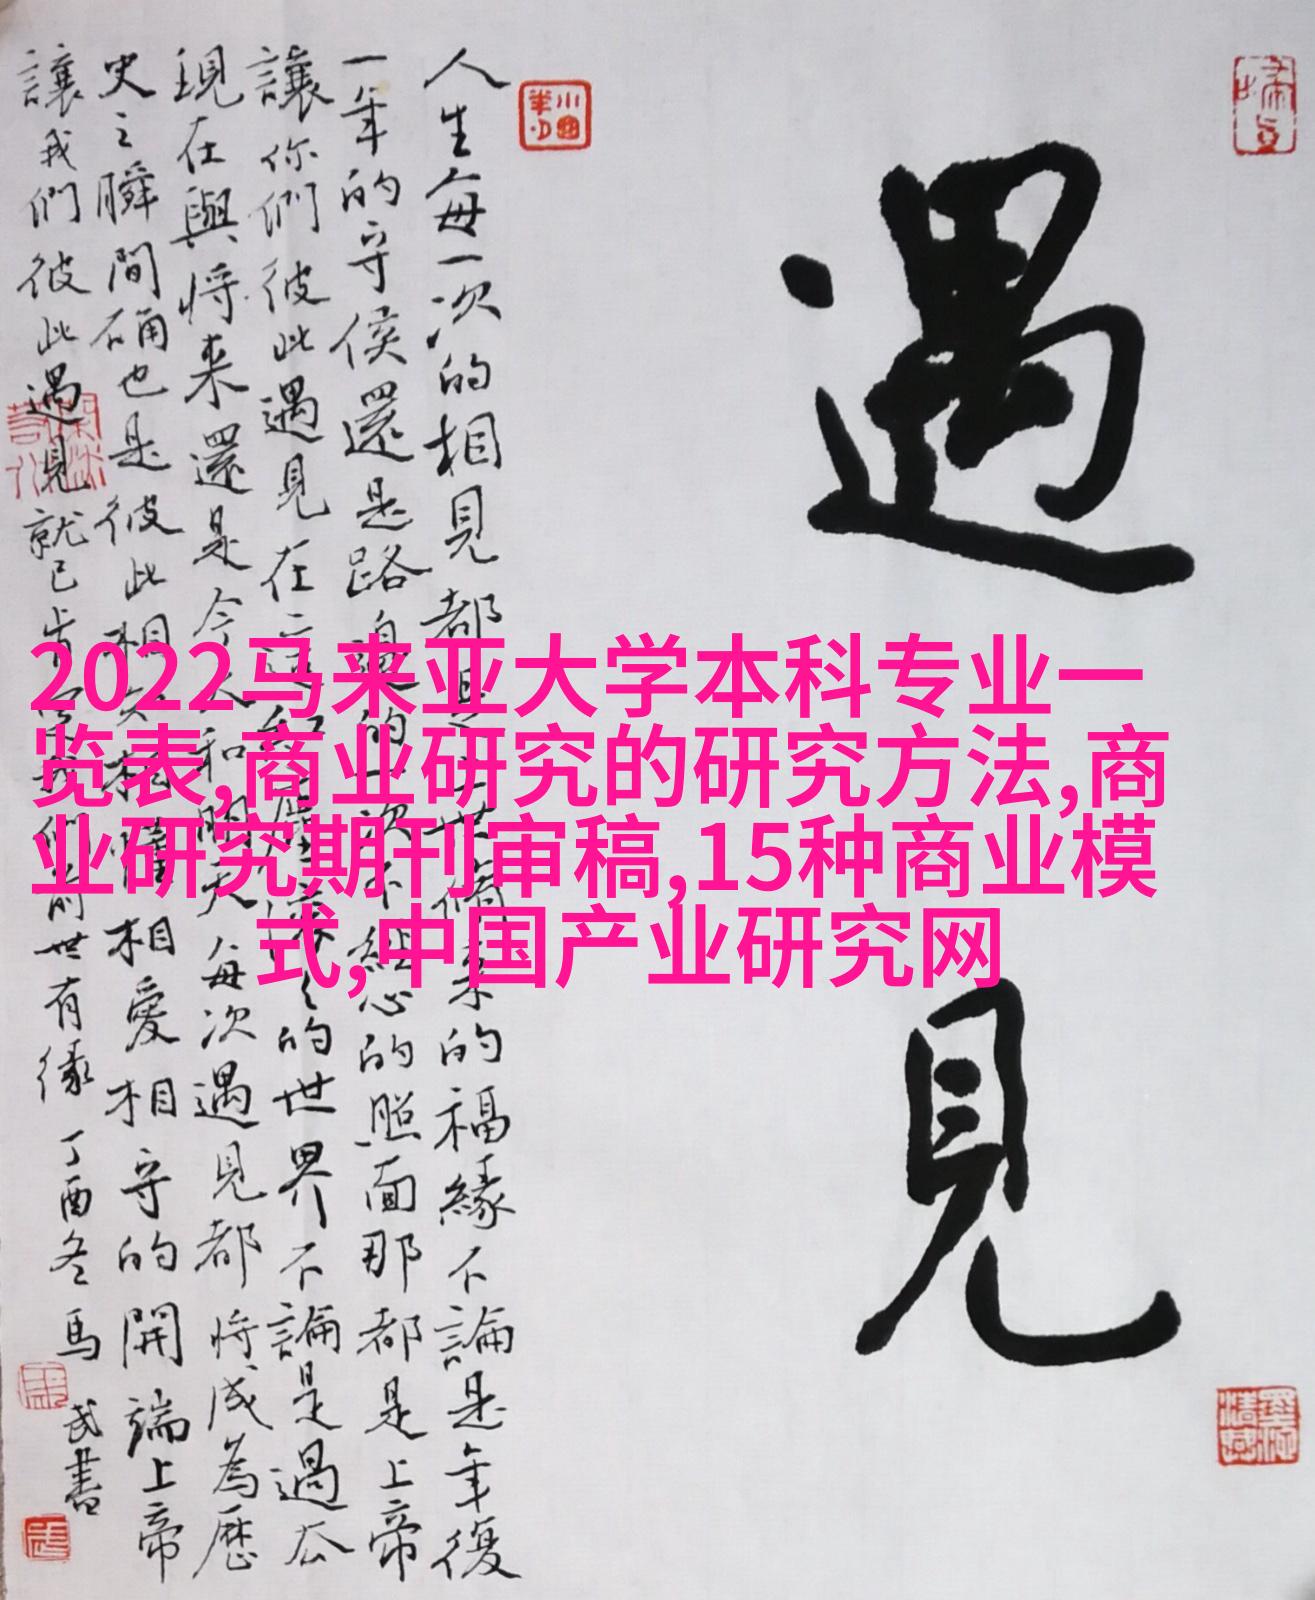 遇見
人生每一次的相見都是上世脩来的福緣不論是年復
一年的守侯還是路邊的一次不經心的照面那都是上帝
讓你們彼此遇見在這紅塵滚々的世界不論是過去
現在與将来還是今天和明天每次遇見都将成為歷
史之瞬間确也是彼此相知相隨相愛相守的開端上帝
讓我們彼此遇見就已肯定我們前世有缘 丁酉冬馬武書
2022马来亚大学本科专业一
览表,商业研究的研究方法,商
业研究期刊审稿,15种商业模
式,中国产业研究网